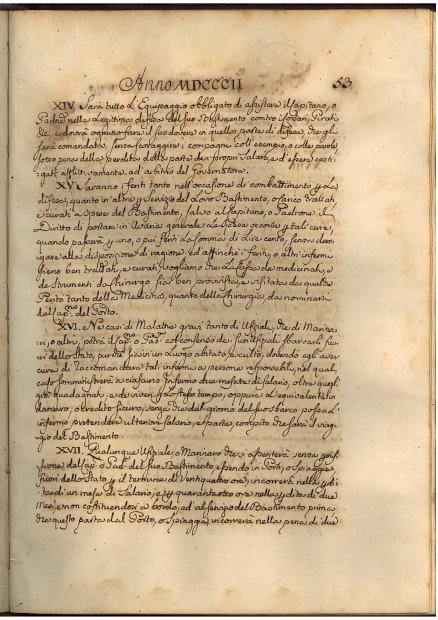 Anno MDCCCII 53
XIV. Sarà tutto l'Equipaggio obbligato di assistere il Capitano, o
Padrone nella legittima difesa del suo Bastimento contro i Corsari, Pirati
&c., e dovrà ognuno fare il suo dovere in quella parte di difesa, che gli
sarà comandata, senza scoraggire i compagni coll'esempio, o colle parole
sotto pena della perdita delle parte dei proprj Salarj, e d'essere casti-
gati afflittivamente ad arbitrio del Governatore.
XV. Saranno i feriti tanto nell'occasione di combattimento p. la
difesa, quanto in altri servizj del loro Bastimento, o Carico trattati
e curati a spese del Bastimento, salvo al Capitano, o Padrone il
Diritto di portare in Avaria generale la spesa per tali cure,
quando però p. uno, o più feriti la somma di Lire cento, senza dero-
gare alla disposizione di ragione, ed affinchè i feriti, o altri infermi
sieno ben trattati, e curati, vogliamo che la Cassa de medicinali, e
de Strumenti da Chirurgo sia ben provvista, e visitata da qualche
Perito tanto della Medicina, quanto della Chirurgia, da nominarsi
dal Cap.no del Porto.
XVI. Ne casi di Malattie gravi tanto di Uffiziali, che di Marina-
ri, o altro, potrà il Cap.no o Pad.ne col consenso de' suoi Uffiziali sbarcarli fuo-
ri dello Stato, purchè sia in un luogo abitato, e culto, dovendo egli aver
cura di raccomandare tali infermi a persone responsabili, nel qual
caso somministrerà a ciascuno Infermo due mesate di salario, oltre quel-
già guadagnati, e de viveri p. lo stesso tempo, oppure l'equivalente in
danaro, o credito sicuro, senza che dal giorno del suo sbarco possa l'
infermo pretendere ulteriori salarj, e parte, compito che sarà il viag-
gio del Bastimento.
XVII. Qualunque Uffiziale, o Marinaro che si assenterà senza permis-
sione del Cap.no o Pad.ne del suo Bastimento, essendo in Porti, o Spiaggie
fuori dello Stato p. il termine di ventiquattro ore, incorrerà nella perdi-
ta di un mese di Salario, e p. quarantotto ore nella perdita di due
Mesi, e non costituendosi a bordo, ed al servigio del Bastimento prima
che questo parta dal Porto, o Spiaggia incorrerà nella pena di due